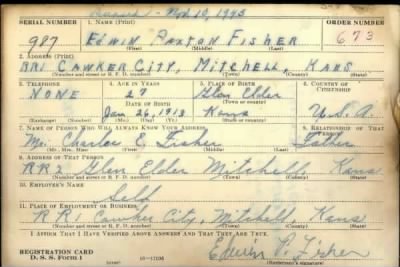 Nov 10, 1943
SERIAL NUMBER 1. NAME (Print) ORDER NUMBER
987 EDWIN PAXTON FISHER 673
(First) (Middle) (Last)
2. ADDRESS (Print)
RR1 CAWKER CITY, MITCHELL, KANS
(Number and street or R. F. D. number) (Town) (County) (State)
3. TELEPHONE 4. AGE IN YEARS 5. PLACE OF BIRTH 6. COUNTRY OF CITIZENSHIP
NONE 27 Glen Elder
DATE OF BIRTH (Town or county)
Jan 26, 1913 Kans U.S.A.
(Mo.) (Day) (Yr.) (State or country)
7. NAME OF PERSON WHO WILL ALWAYS KNOW YOUR ADDRESS 8. RELATIONSHIP OF THAT PERSON
Mr. Charles E. Fisher Father
(Mr., Mrs., Miss) (First) (Middle) (Last)
9. ADDRESS OF THAT PERSON
RR2 Glen Elder Mitchell Kans
(Number and street or R. F. D. number) (Town) (County) (State)
10. EMPLOYER'S NAME
Self
11. PLACE OF EMPLOYMENT OR BUSINESS
RR1 Cawker City, Mitchell, Kans
(Number and street or R. F. D. number) (Town) (County) (State)
I AFFIRM THAT I HAVE VERIFIED ABOVE ANSWERS AND THAT THEY ARE TRUE.
REGISTRATION CARD
D. S. S. FORM 1 16—17105 Edwin P. Fisher
(Registrant's signature)